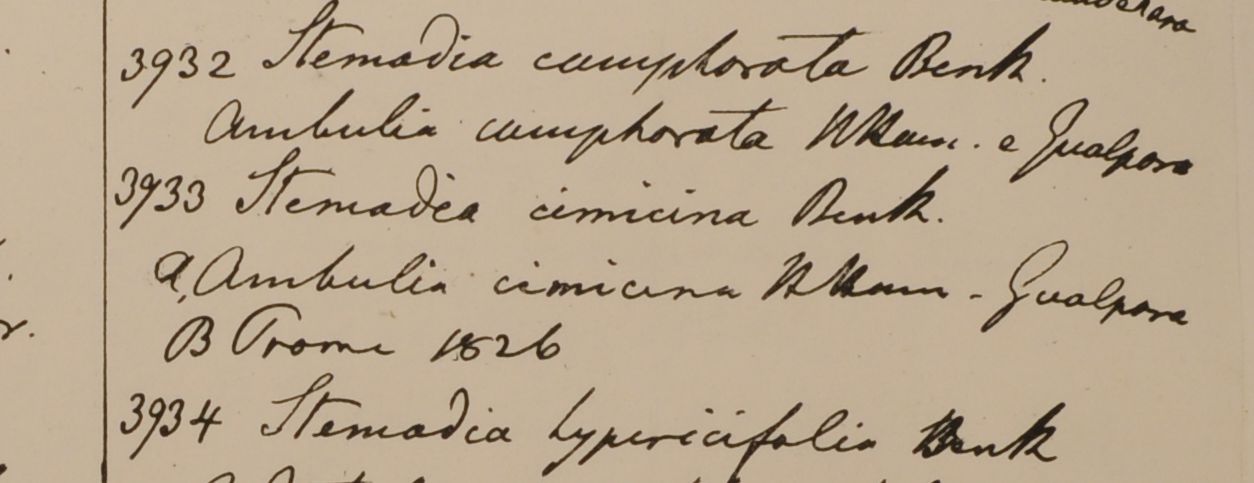 3932 Stemadia camphorata Benth.
Ambulia camphorata HHam. e Gualpora
3933 Stemadia cimicina Benth.
a, Ambulia cimicina HHam - Gualpora
B Prome 1826
3934 Stemadia hypericifolia Benth